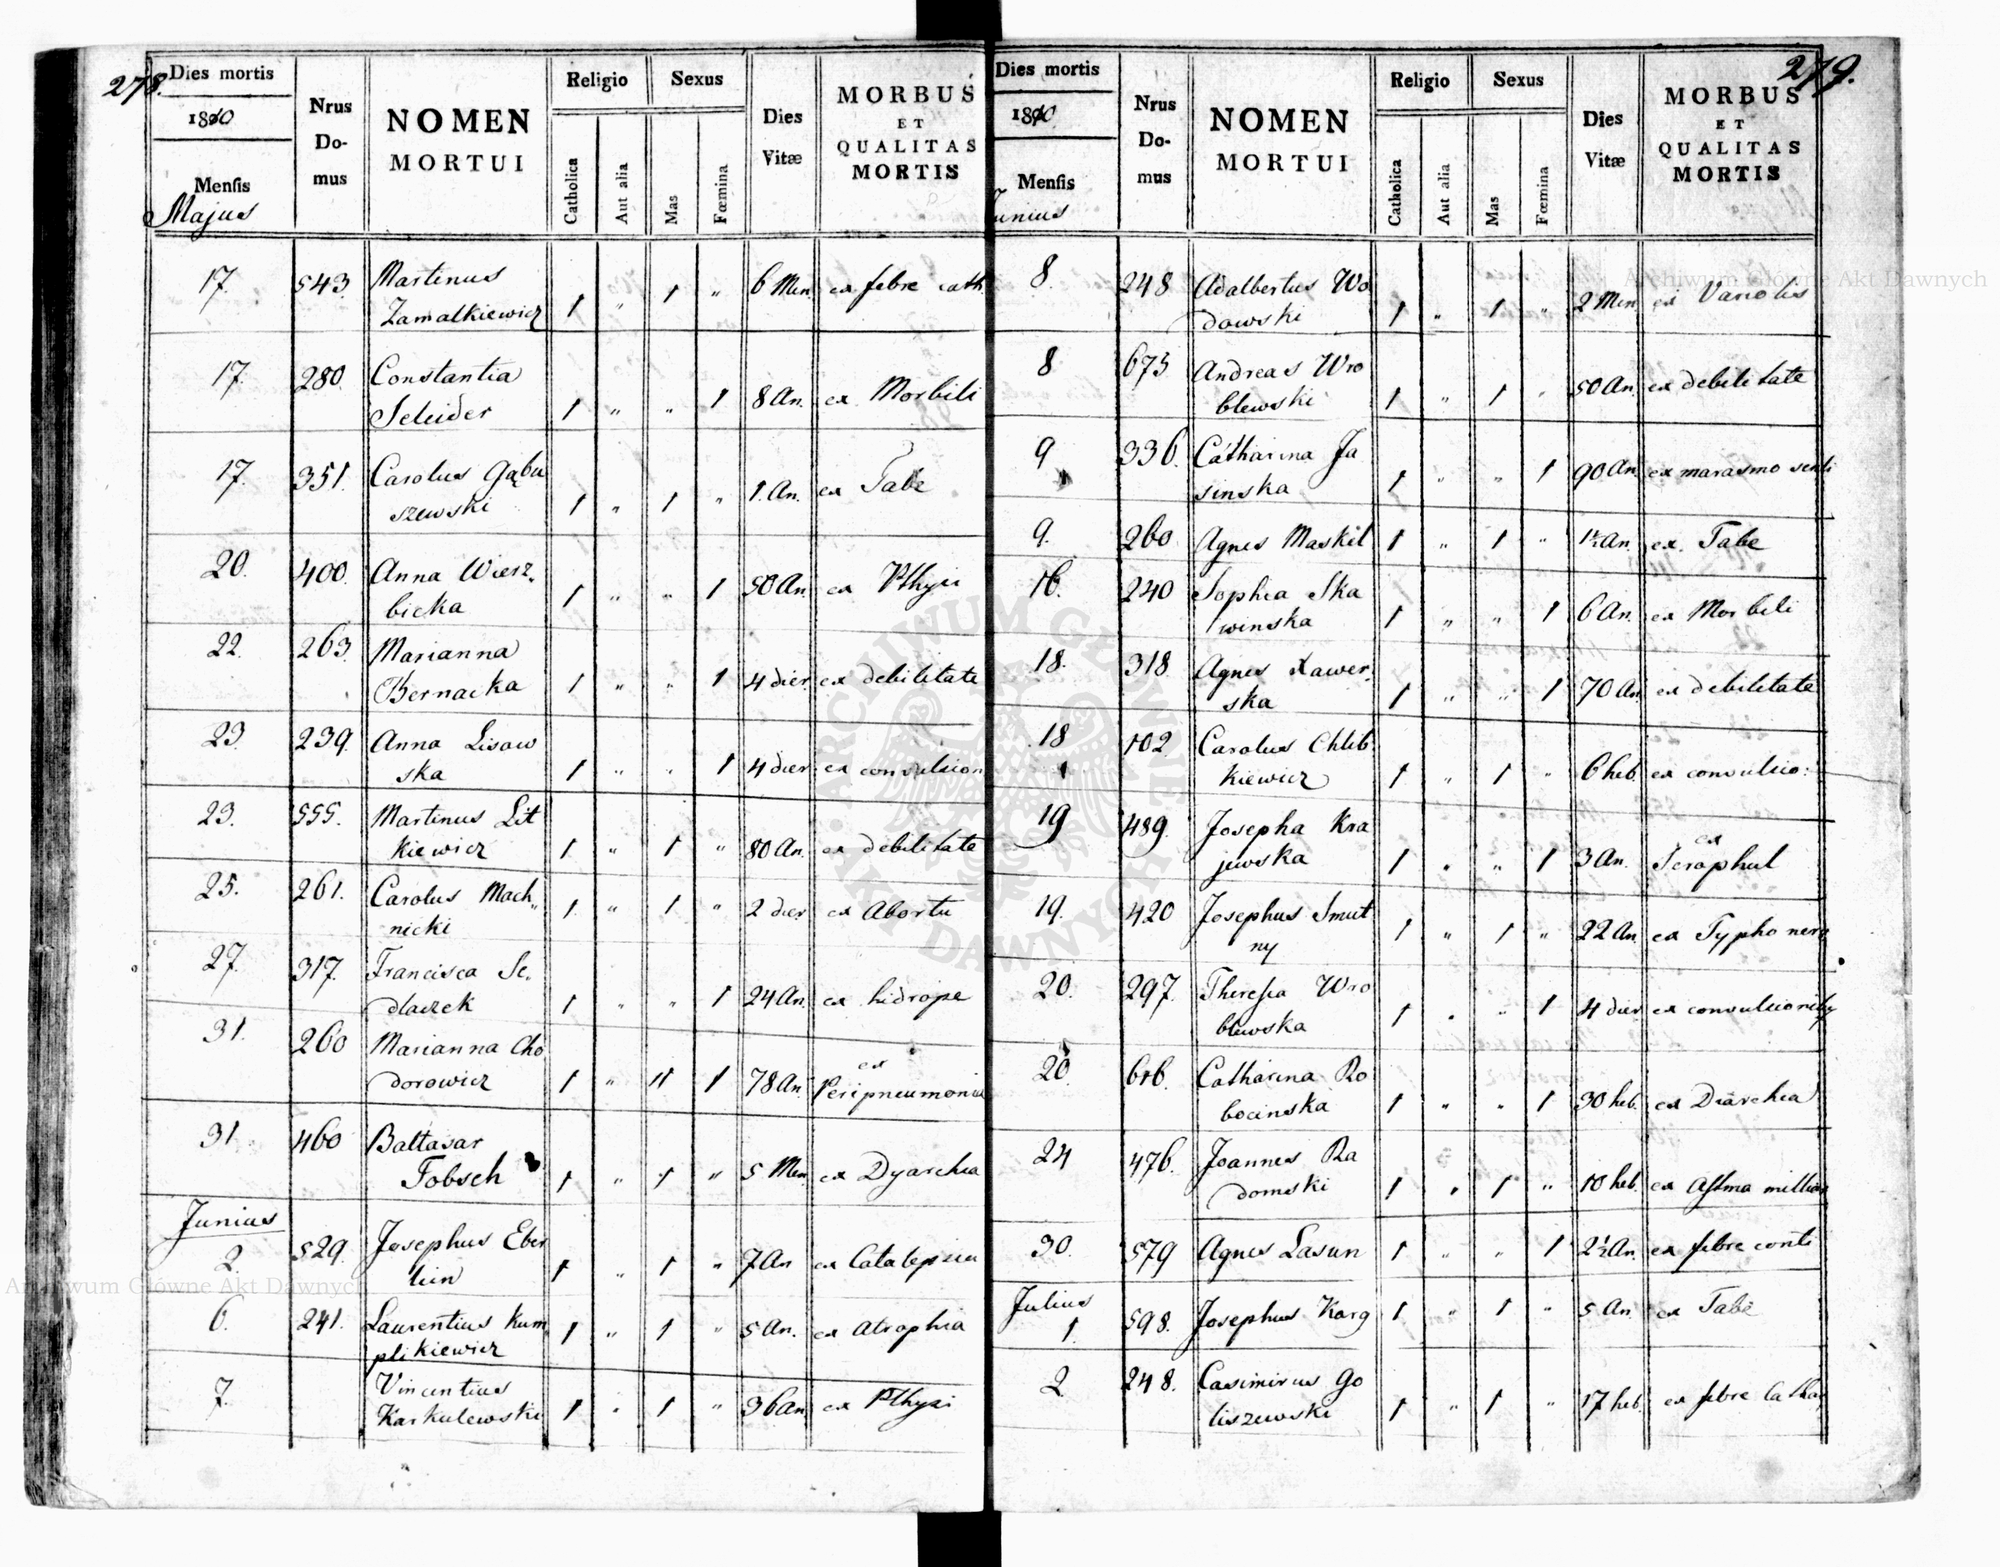 278.
Dies mortis
1810
Mensis
Majus
Nrus
Do-
mus
NOMEN
MORTUI
Religio
Catholica
Aut alia
Sexus
Mas
Fœmina
Dies
Vitæ
MORBUS
ET
QUALITAS
MORTIS
17. 543. Martinus 6 Men. ex febre cath.
Zamalkiewicz 1 " 1 "
17. 280. Constantia 8 An. ex Morbili
Seleider 1 " " 1
17. 351. Carolus Gabu 1. An. ex Tabe
szewski 1 " 1 "
20. 400. Anna Wierz, 50 An. ex Pthysi
bicka 1 " " 1
22. 263. Marianna
Bernacka 1 " " 1 4 dier. ex debilitate
23. 239. Anna Lisow
ska 1 " " 1 4 dier. ex convulsion
23. 555. Martinus Lit
kiewicz 1 " 1 " 80 An. ex debilitate
25. 261. Carolus Mach„ 1. " 1 " 2 dier ex Abortu
nicki
27. 317. Francisca Se„
dlaczek 1 " " 1 24 An. ex hidrope
31. 260 Marianna Cho ex
dorowicz 1 " 11 1 78 An. Peripneumonia
31. 460 Baltasar
Tobsch 1 " 1 " 5 Men. ex Dyarchea
Junius
2. 529. Josephus Eber
lein 1 " 1 " 7 An ex Catalepsia
6. 241. Laurentius Kum 1 " 1 " 5 An. ex Atrophia
plikiewicz
7. Vincentius
Karkulewski 1 " 1 " 36 An. ex Pthysi
279.
Dies mortis
1810.
Mensis
Junius
Nrus
Do-
mus
NOMEN
MORTUI
Religio
Catholica
Aut alia
Sexus
Mas
Fœmina
Dies
Vitæ
MORBUS
ET
QUALITAS
MORTIS
8. 248 Adalbertus Wo
dowski 1 " 1 " 2 Men. ex Variolis
8 673 Andreas Wro
blewski 1 " 1 " 50 An. ex debilitate
9 336. Catharina Ja
sinska 1 " " 1 90 An. ex marasmo senli
9. 260 Agnes Maskil 1 " 1 " 1½ An. ex. Tabe
16. 240 Sophia Ska
winska 1 " " 1 6 An. ex Morbili
18. 318 Agnes Xawer„
ska 1 " " 1 70 An. ex debilitate
18 102. Carolus Chleb
kiewicz 1 " 1 " 6 heb. ex convulsio:
19 489. Josepha Kra ex
jewska 1 " " 1 3 An. Scrophul
19. 420 Josephus Smut
ny 1 " 1 " 22 An. ex Typho nerv
20. 297. Theresia Wro
blewska 1 " " 1 4 dier ex convulsionib
20. 616. Catharina Ro
bocinska 1 " " 1 30 heb. ex Diarchea
24 476. Joannes Ra
domski 1 " 1 " 10 heb. ex Astma millia
30. 579 Agnes Lasun 1 " " 1 2½ An. ex febre conti
Julius
1. 598. Josephus Karg 1 " 1 " 5 An. ex Tabe
2 248. Casimirus Go
liszewski 1 " 1 " 17 heb. ex febre Cathar
Archiwum Główne Akt Dawnych
Archiwum Główne Akt Dawnych
ARCHIWUM GŁÓWNE AKT DAWNYCH